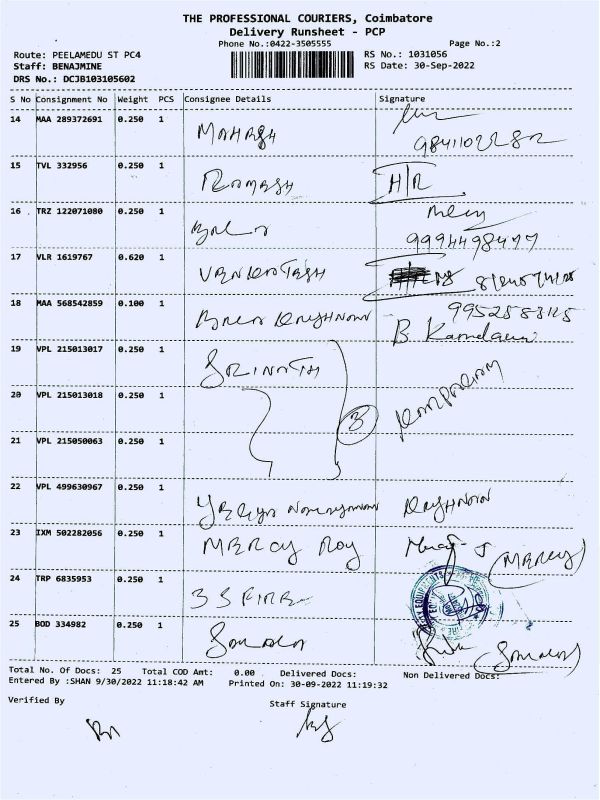 THE PROFESSIONAL COURIERS, Coimbatore
Delivery Runsheet - PCP
Phone No.:0422-3505555
Page No.:2
Route: PEELAMEDU ST PC4
Staff: BENAJMINE
DRS No.: DCJB103105602
RS No.: 1031056
RS Date: 30-Sep-2022
S No Consignment No Weight PCS Consignee Details Signature
14 MAA 289372691 0.250 1 MAHASH
15 TVL 332956 0.250 1 RAMASH H/R
16 TRZ 122071080 0.250 1 BALA
9994498477
17 VLR 1619767 0.620 1 VENKATASH
18 MAA 568542859 0.100 1 BALA KRISHNAN
9952583125
19 VPL 215013017 0.250 1 SRINATH
20 VPL 215013018 0.250 1
3
21 VPL 215050063 0.250 1
22 VPL 499630967 0.250 1 KRISHNAN
23 IXM 502282056 0.250 1 MERCY ROY (MERCY)
24 TRP 6835953 0.250 1 3 S FIRE
25 BOD 334982 0.250 1
Total No. Of Docs: 25 Total COD Amt: 0.00 Delivered Docs: Non Delivered Docs:
Entered By :SHAN 9/30/2022 11:18:42 AM Printed On: 30-09-2022 11:19:32
Verified By
Staff Signature